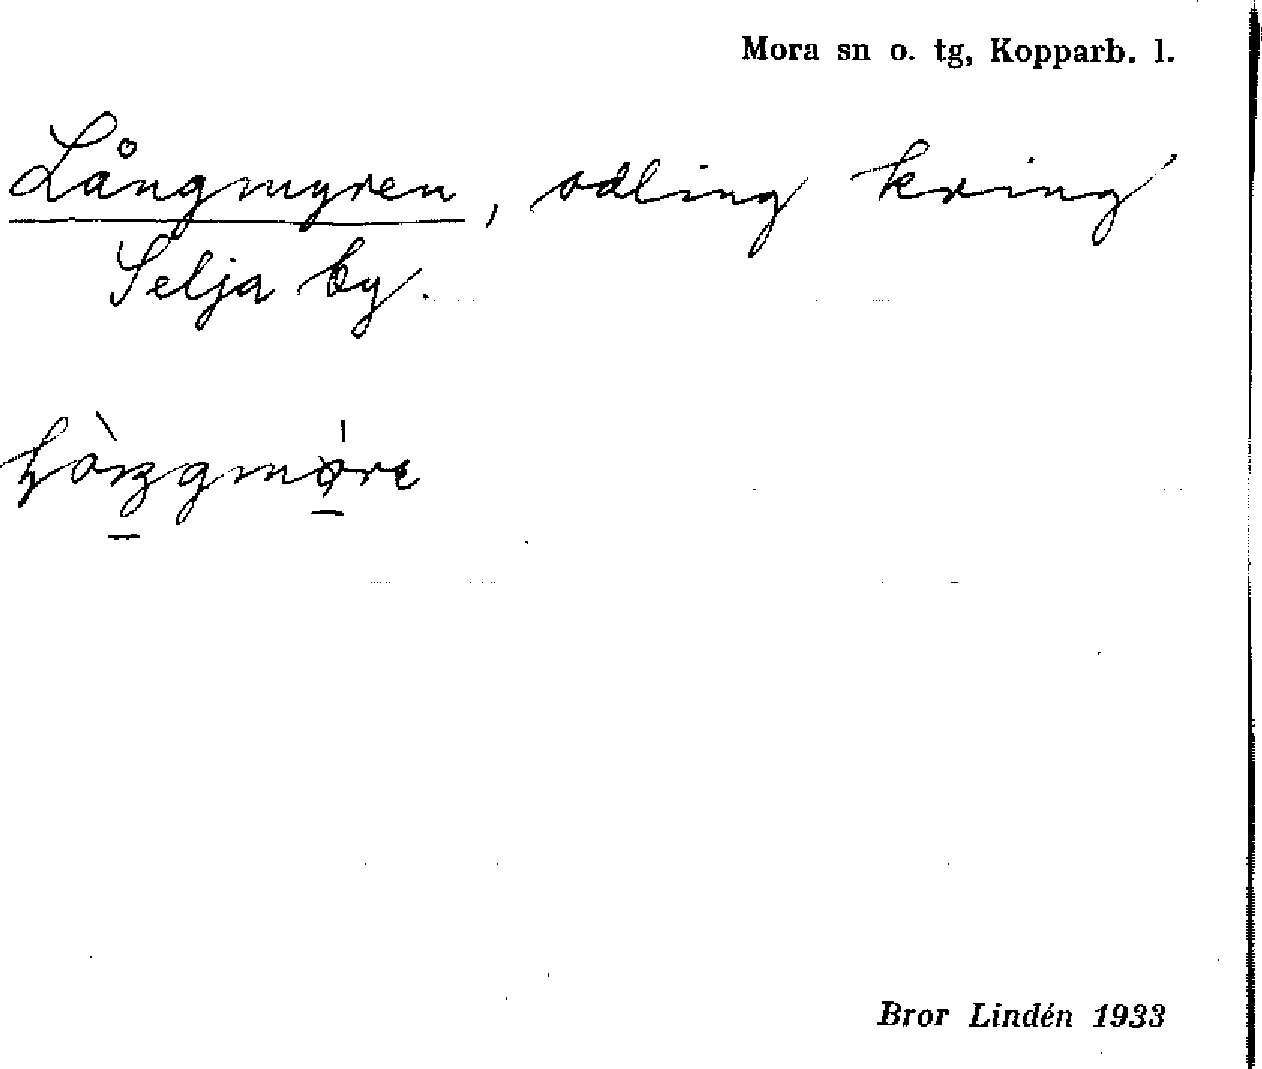 Mora sn o. tg, Kopparb. l.
Långmyren, odling kring
Selja by.
Bror Lindén 1933